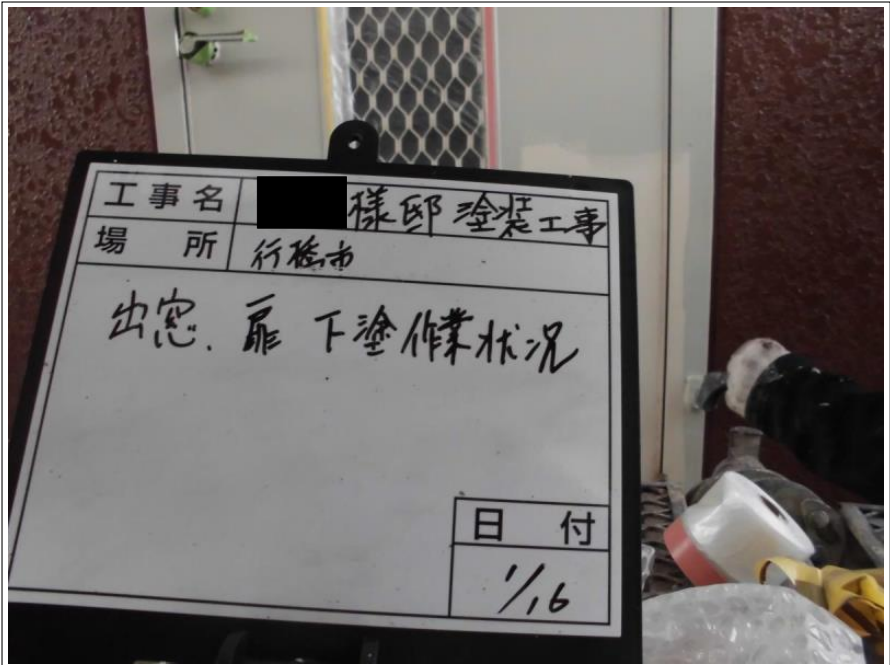 工事名 様邸 塗装工事
場所 行橋市
出窓、扉 下塗作業状況
日付
1/16